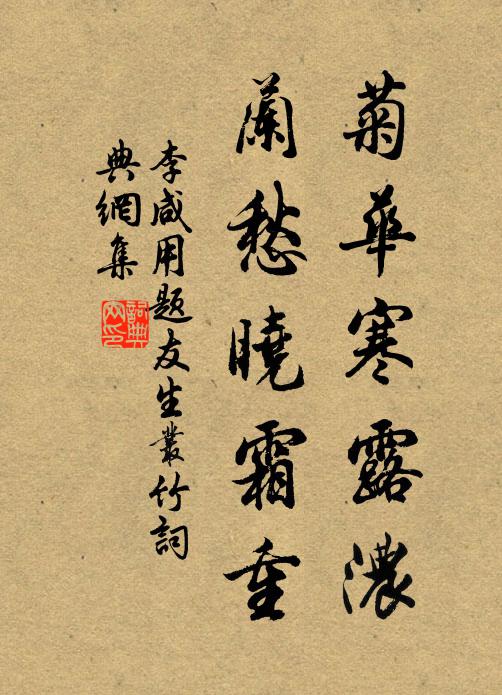 菊華寒露濃
蘭愁曉霜重
李咸用題友生叢竹詞
典網集
詞典網印